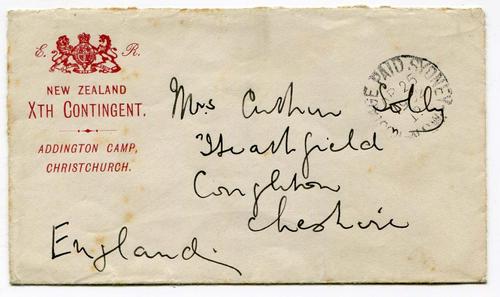 E. R.
NEW ZEALAND
XTH CONTINGENT.
ADDINGTON CAMP,
CHRISTCHURCH.
PAID SYDNEY
25
Mrs Arthur Solly
Heathfield
Congleton
Cheshire
England.